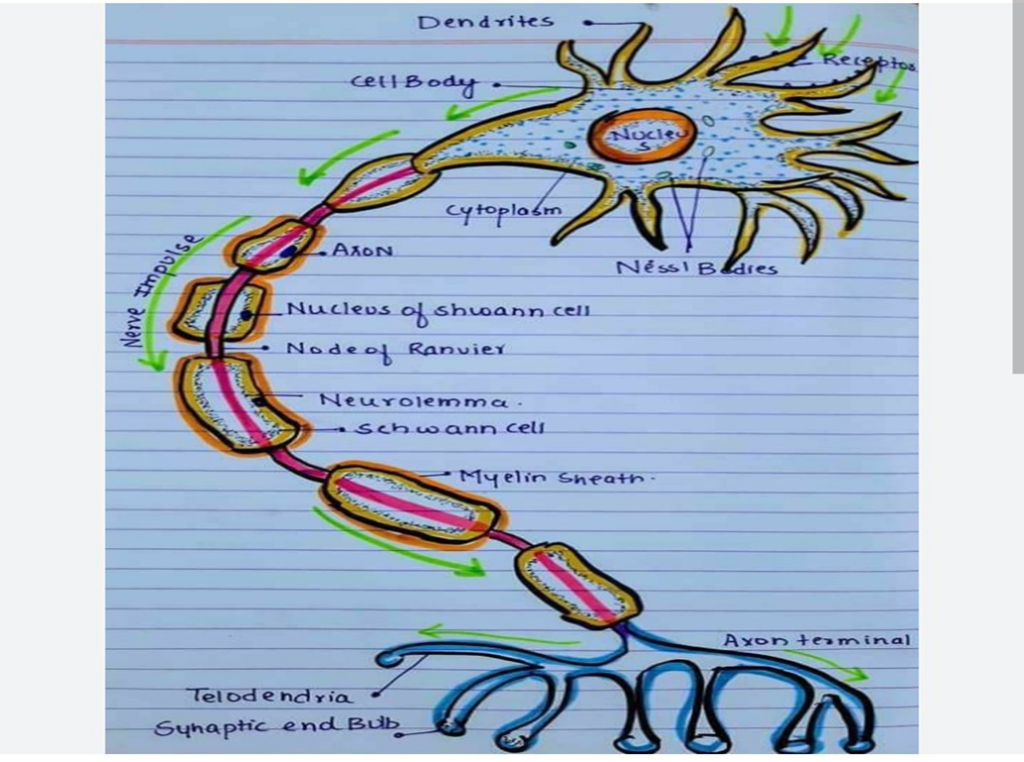 Dendrites
Receptos
Cell Body
Nucleu
s
Cytoplasm
Nessl Bodies
Nerve Impulse
Axon
Nucleus of shwann cell
Node of Ranvier
Neurolemma.
Schwann cell
Myelin Sheath.
Axon terminal
Telodendria
Synaptic end Bulb